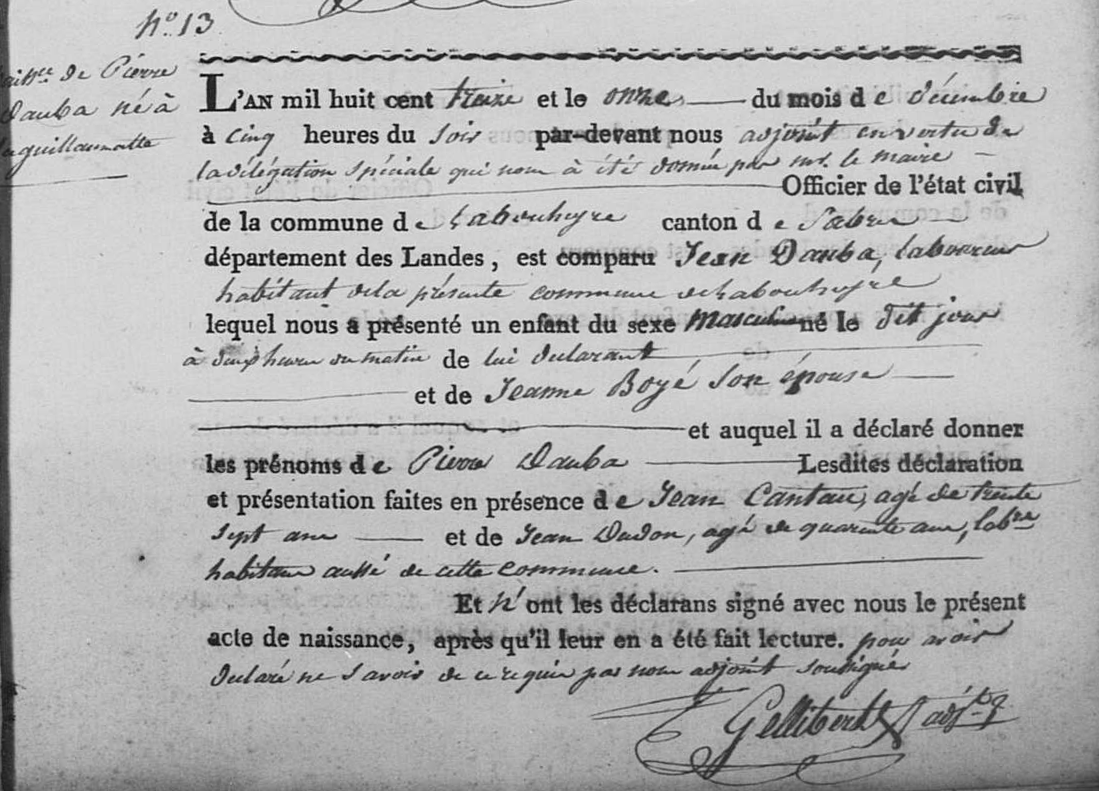 nº 13
naiss.ce de Pierre
Dauba né à
guillaumatte
L'AN mil huit cent treize et le onze du mois de décembre
à cinq heures du soir par-devant nous adjoint en vertu de
la délégation spéciale qui nous à été donnée par mr. le maire
Officier de l'état civil
de la commune de Labouheyre canton de Sabres
département des Landes, est comparu Jean Dauba, laboureur
habitant de la présente commune de Labouheyre
lequel nous a présenté un enfant du sexe masculin né le dit jour
à heures du matin de lui déclarant
et de Jeanne Boyé son épouse
et auquel il a déclaré donner
les prénoms de Pierre Dauba Lesdites déclaration
et présentation faites en présence de Jean Cantau, agé de trente
sept ans et de Jean Dudon, agé de quarante ans, labre
habitans aussi de cette commune.
Et n'ont les déclarans signé avec nous le présent
acte de naissance, après qu'il leur en a été fait lecture. pour avoir
déclaré ne savoir de ce requis par nous adjoint soussigné
Gellibert adjt